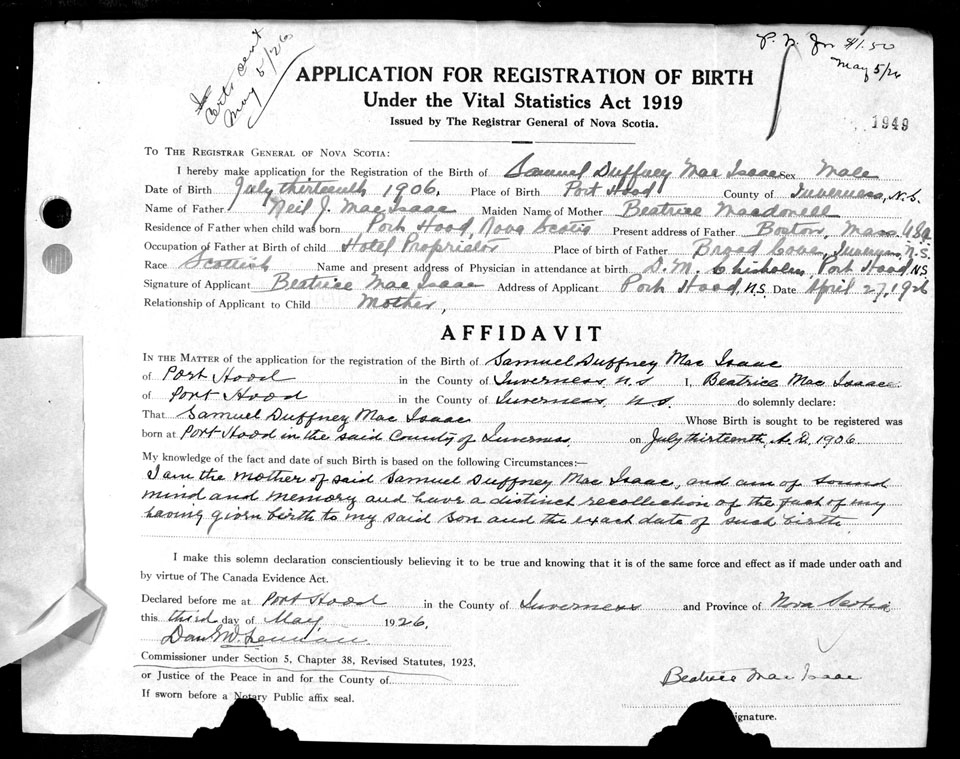 Certs sent
May 5/26
P. N. for $1.50
May 5/26
1949
APPLICATION FOR REGISTRATION OF BIRTH
Under the Vital Statistics Act 1919
Issued by The Registrar General of Nova Scotia.
To The Registrar General of Nova Scotia:
I hereby make application for the Registration of the Birth of Samuel Duffney Mac Isaac Sex Male
Date of Birth July thirteenth 1906, Place of Birth Port Hood County of Inverness, N.S.
Name of Father Neil J. Mac Isaac Maiden Name of Mother Beatrice Macdonell
Residence of Father when child was born Port Hood, Nova Scotia Present address of Father Boston, Mass. USA
Occupation of Father at Birth of child Hotel Proprietor Place of birth of Father Broad Cove, Inverness, N.S.
Race Scottish Name and present address of Physician in attendance at birth D. M. Chisholm, Port Hood, N.S.
Signature of Applicant Beatrice Mac Isaac Address of Applicant Port Hood, N.S. Date April 27, 1926
Relationship of Applicant to Child Mother,
AFFIDAVIT
In the Matter of the application for the registration of the Birth of Samuel Duffney Mac Isaac
of Port Hood in the County of Inverness, N.S I, Beatrice Mac Isaac
of Port Hood in the County of Inverness, N.S. do solemnly declare:
That Samuel Duffney Mac Isaac Whose Birth is sought to be registered was
born at Port Hood in the said County of Inverness, on July thirteenth, A.D. 1906.
My knowledge of the fact and date of such Birth is based on the following Circumstances:—
I am the mother of said Samuel Duffney Mac Isaac, and am of sound
mind and memory and have a distinct recollection of the fact of my
having given birth to my said son and the exact date of such birth.
I make this solemn declaration conscientiously believing it to be true and knowing that it is of the same force and effect as if made under oath and
by virtue of The Canada Evidence Act.
Declared before me at Port Hood in the County of Inverness and Province of Nova Scotia
this third day of May 1926.
Commissioner under Section 5, Chapter 38, Revised Statutes, 1923,
or Justice of the Peace in and for the County of
Beatrice Mac Isaac
If sworn before a Notary Public affix seal.
ignature.